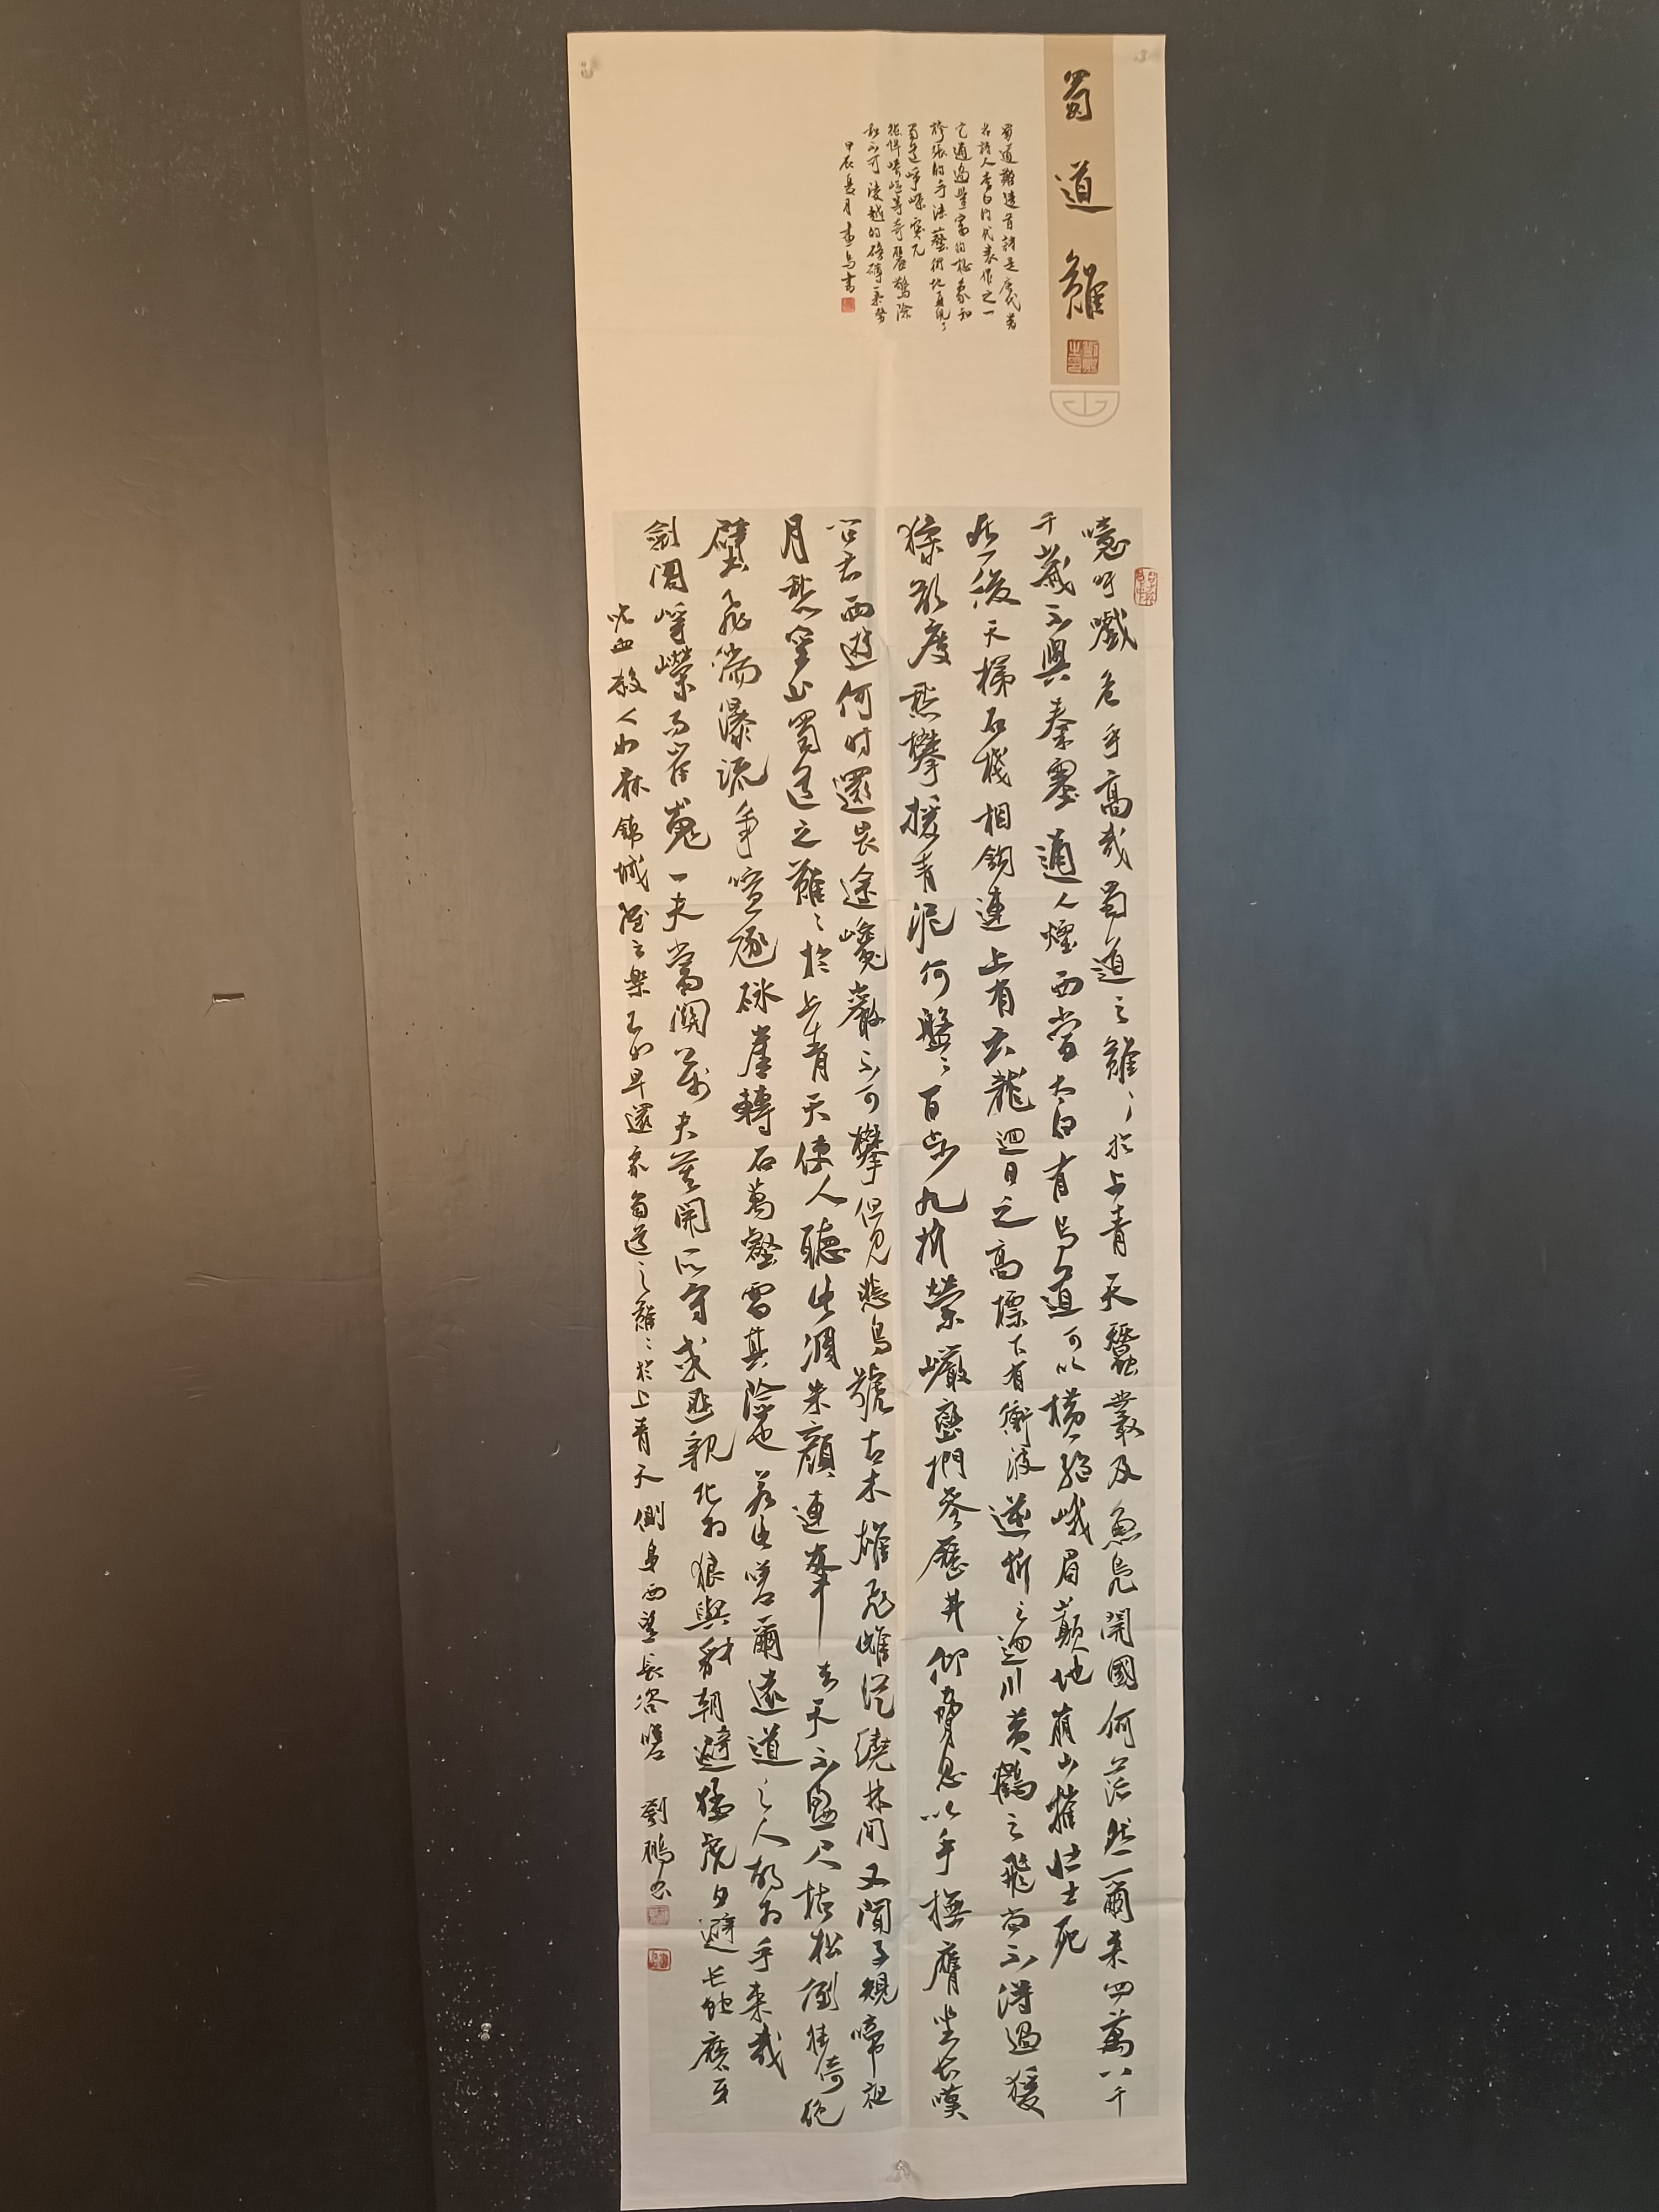 蜀道難
蜀道難這首詩是唐代著
名詩人李白的代表作之一
它通過豐富的想象和
誇張的手法藝術地再現了
蜀道崢嶸突兀
強悍崎嶇等奇麗驚險
和不可凌越的磅礴氣勢
甲辰夏月 書
噫吁戲危乎高哉蜀道之難〻於上青天蠶叢及魚鳧開國何茫然爾來四萬八千
千歲不與秦塞通人煙西當太白有鳥道可以橫絕峨眉巔地崩山摧壯士死
然後天梯石棧相鉤連上有六龍迴日之高標下有衝波逆折之迴川黃鶴之飛尚不得過猨
猱欲度愁攀援青泥何盤〻百步九折縈巖巒捫參歷井仰脅息以手撫膺坐長嘆
問君西遊何時還畏途巉巖不可攀但見悲鳥號古木雄飛雌從繞林間又聞子規啼夜
月愁空山蜀道之難〻於上青天使人聽此凋朱顏連峯去天不盈尺枯松倒挂倚絕
壁飛湍瀑流爭喧豗砯崖轉石萬壑雷其險也若此嗟爾遠道之人胡為乎來哉
劍閣崢嶸而崔嵬一夫當關萬夫莫開所守或匪親化為狼與豺朝避猛虎夕避長蛇磨牙
吮血殺人如麻錦城雖云樂不如早還家蜀道之難〻於上青天側身西望長咨嗟 劉鵬書